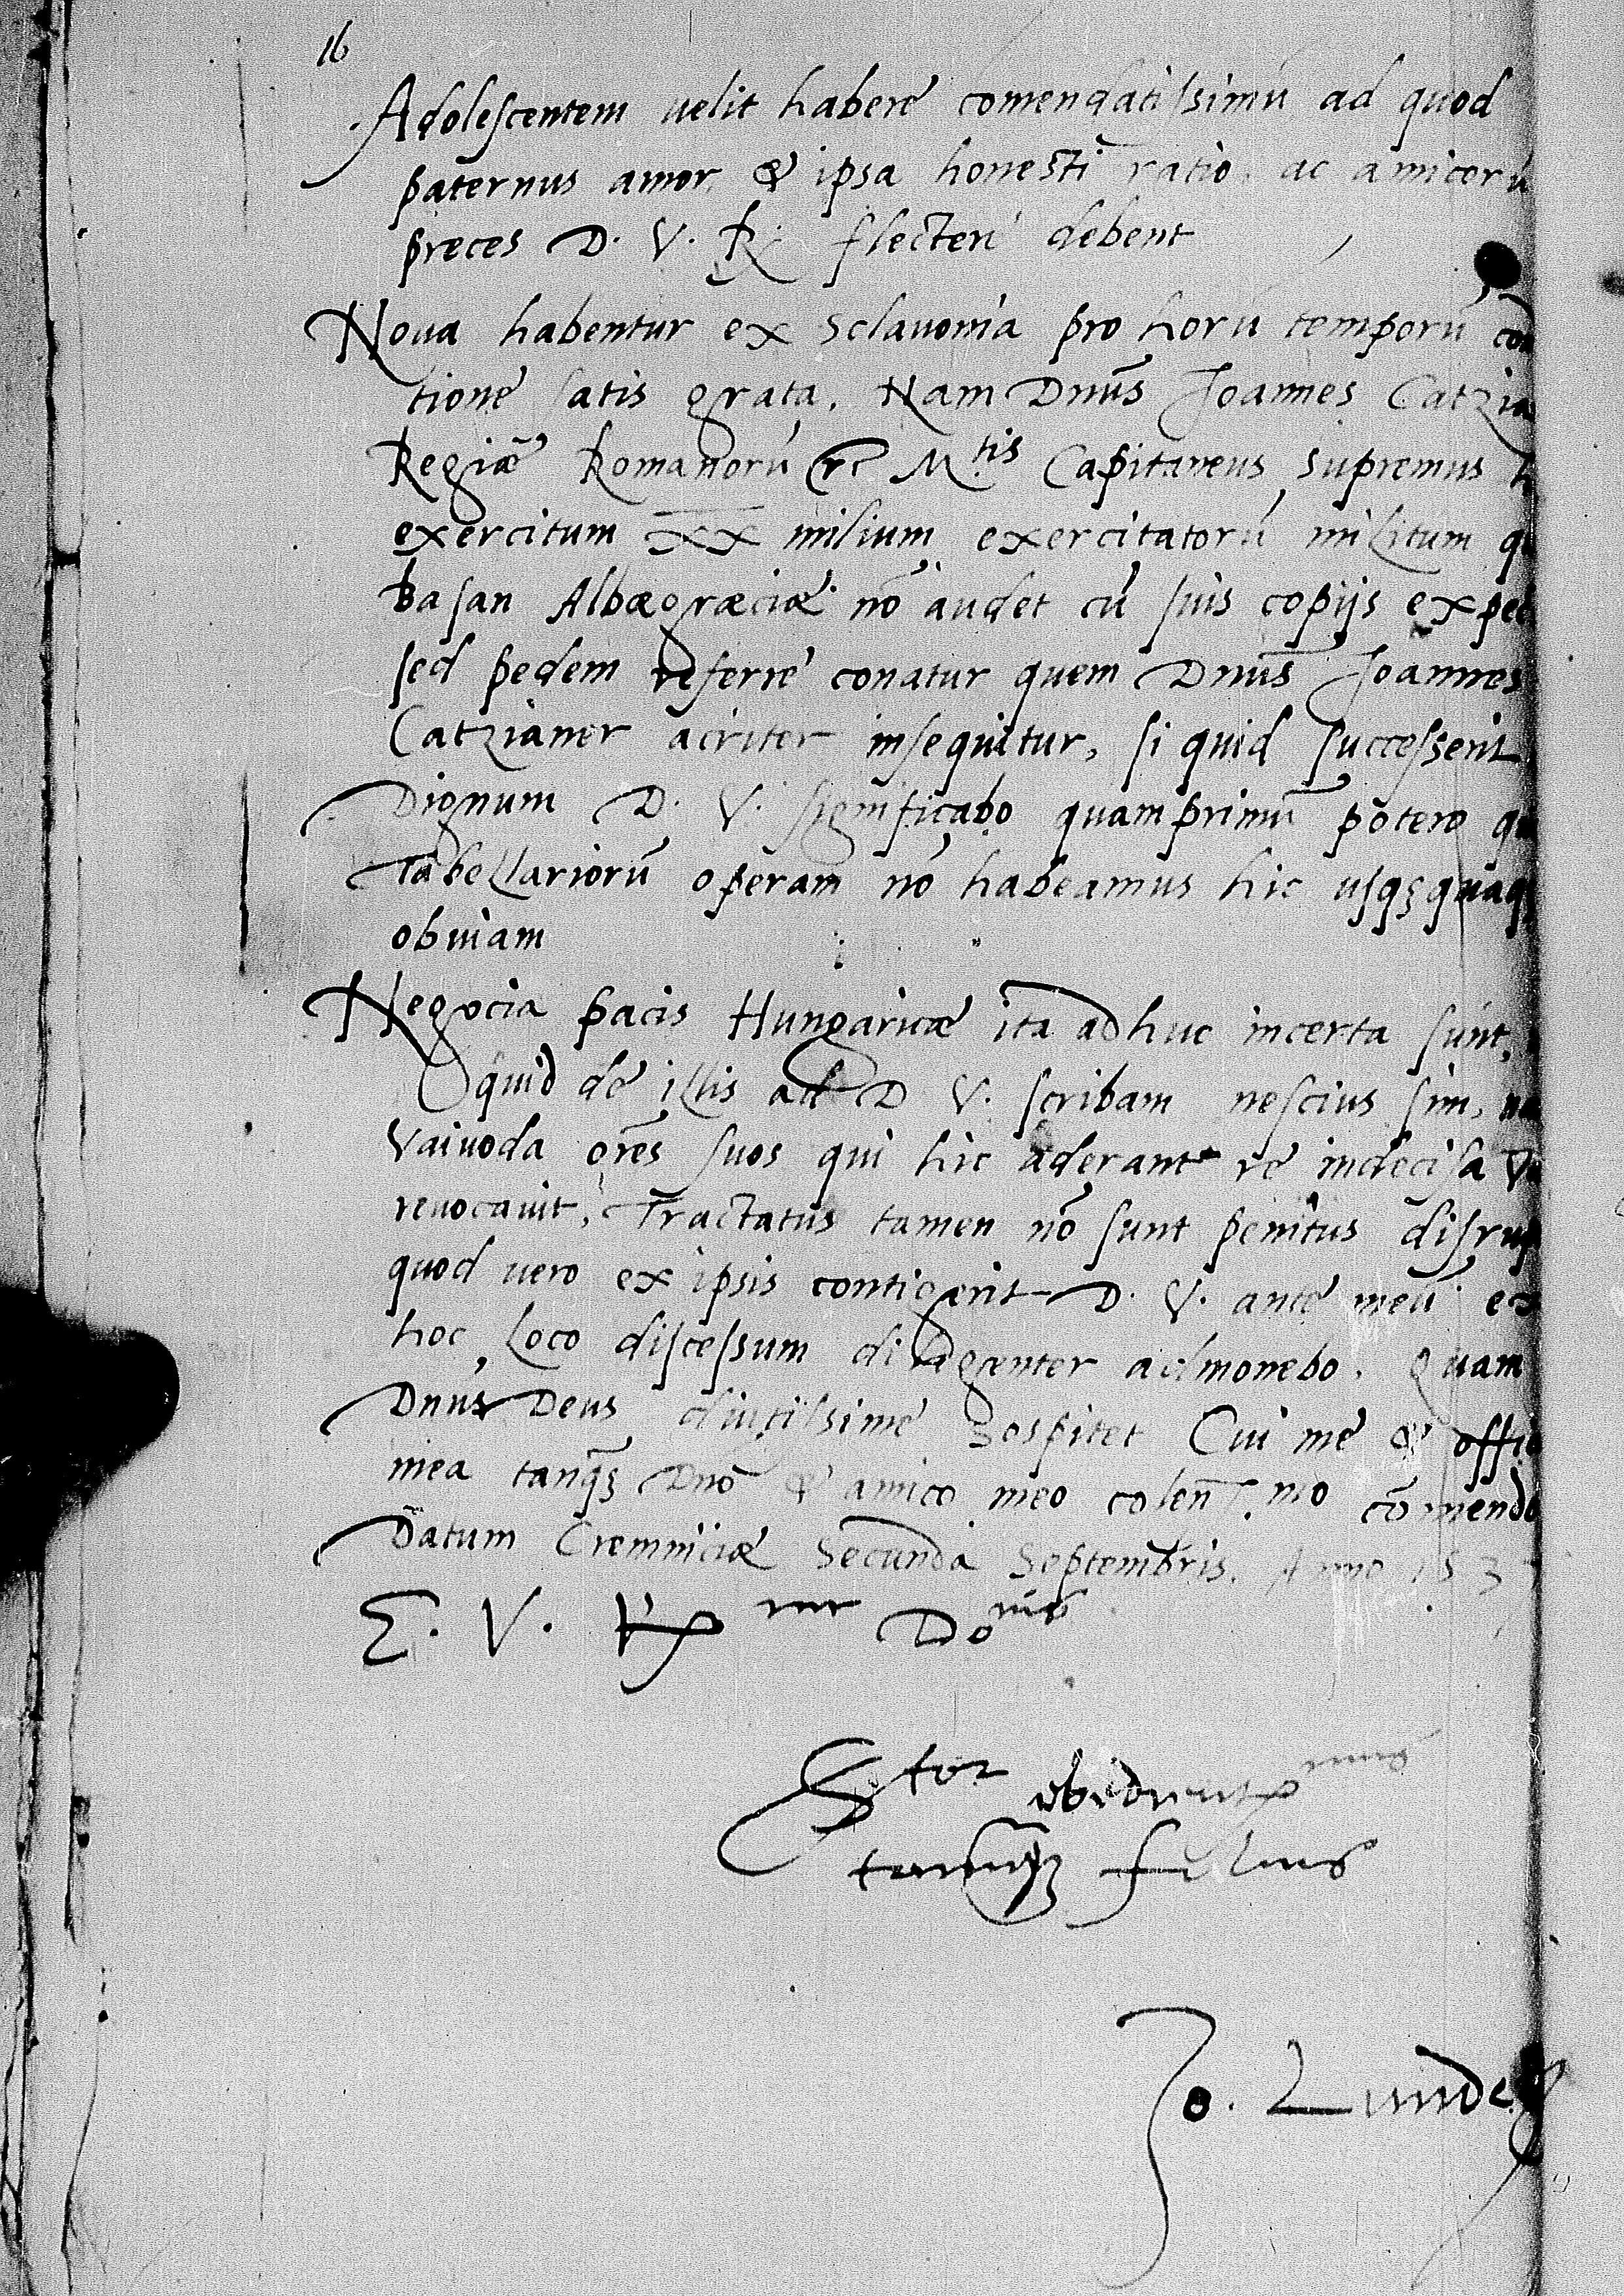 16
Adolescentem uelit habere comendatissimū ad quod
paternus amor & ipsa honesti ratio. ac amicorū
preces D. V. R. flecteri debent
Noua habentur ex Sclauonia pro horū temporū con
tione satis grata. Nam Dnūs Joannes Catzia
Regiæ Romanorū &c M.tis Capitaneus supremus h
exercitum XX milium exercitatorū militum q
Basan Albægræciæ nō audet cū suis copijs expe
sed pedem referre conatur quem Dnūs Joannes
Catzianer acriter insequitur, si quid successerit
Dignum D. V. significabo quamprimū potero qu
Tabellariorū operam nō habeamus hic usq; quaq
obuiam
Negocia pacis Hungaricæ ita adhuc incerta sunt,
quid de illis ad D V. scribam nescius sim, na
Vaiuoda orēs suos qui hic aderant re indecisa
reuocauit. Tractatus tamen nō sunt penitus disrup
quod uero ex ipsis contigerit D. V. ante meū ex
hoc loco discessum diligenter admonebo. Quam
Dnūs Deus diutissime sospitet Cui me & offic
mea tanq̄; Dnō & amico meo colen. mo cōmendo
Datum Cremniciæ Secunda Septembris. Anno 153
E. V. R. Do
tor obedient
tamq̄; filius
Jo. Lunde